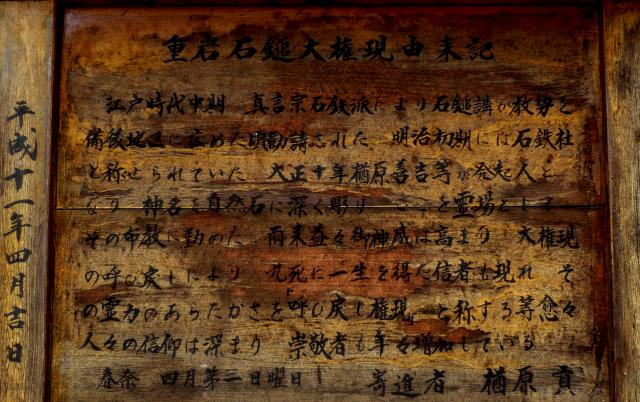 重岩石鎚大権現由来記
江戸時代中期　真言宗石鉄派により石鎚講が教勢を
備後地区に広めた頃勧請された　明治初期には石鉄社
と称せられていた　大正十年楢原善吉等が発起人と
なり　神名を自然石に深く彫り　ここを霊場として
その布教に勤めた　爾来益々御神威は高まり　大権現
の呼び戻しにより　九死に一生を得た信者も現れ　そ
の霊力のあらたかさを「呼び戻し権現」と称する等愈々
人々の信仰は深まり　崇敬者も年々増加している
春祭　四月第二日曜日　寄進者　楢原　貢
平成十一年四月吉日